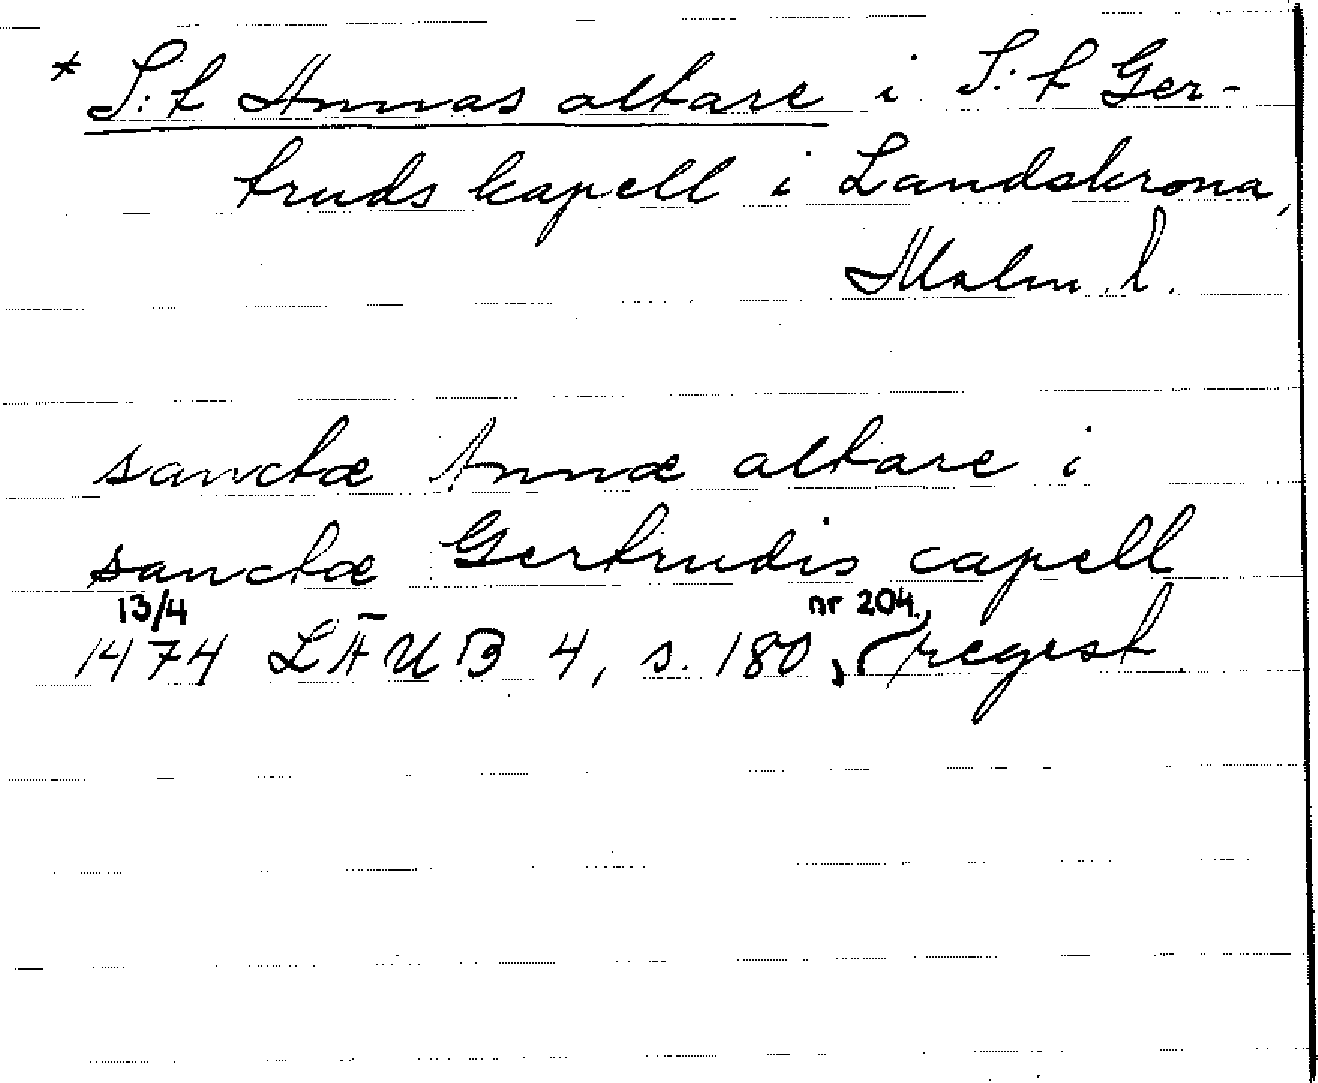 * S:t Annas altare i S:t Ger-
truds kapell i Landskrona,
Malm. l.
sanctæ Annæ altare i
sanctæ Gertrudis capell
13/4 nr 204,
1474 LÄUB 4, s. 180, (regest